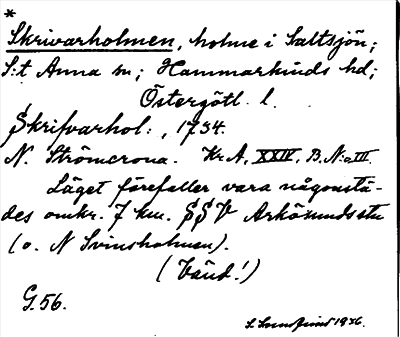 *
Skrivarholmen, holme i Saltsjön;
S:t Anna sn; Hammarkinds hd;
Östergötl. l.
Skrifvarhol:, 1734.
N. Strömcrona. Kr.A, XXIV, B, N:o III.
Läget förefaller vara någonstä-
des omkr. 7 km. SSV Arkösunds stn
(o. N Svinsholmen).
(Vänd!)
G. 56.
1936.